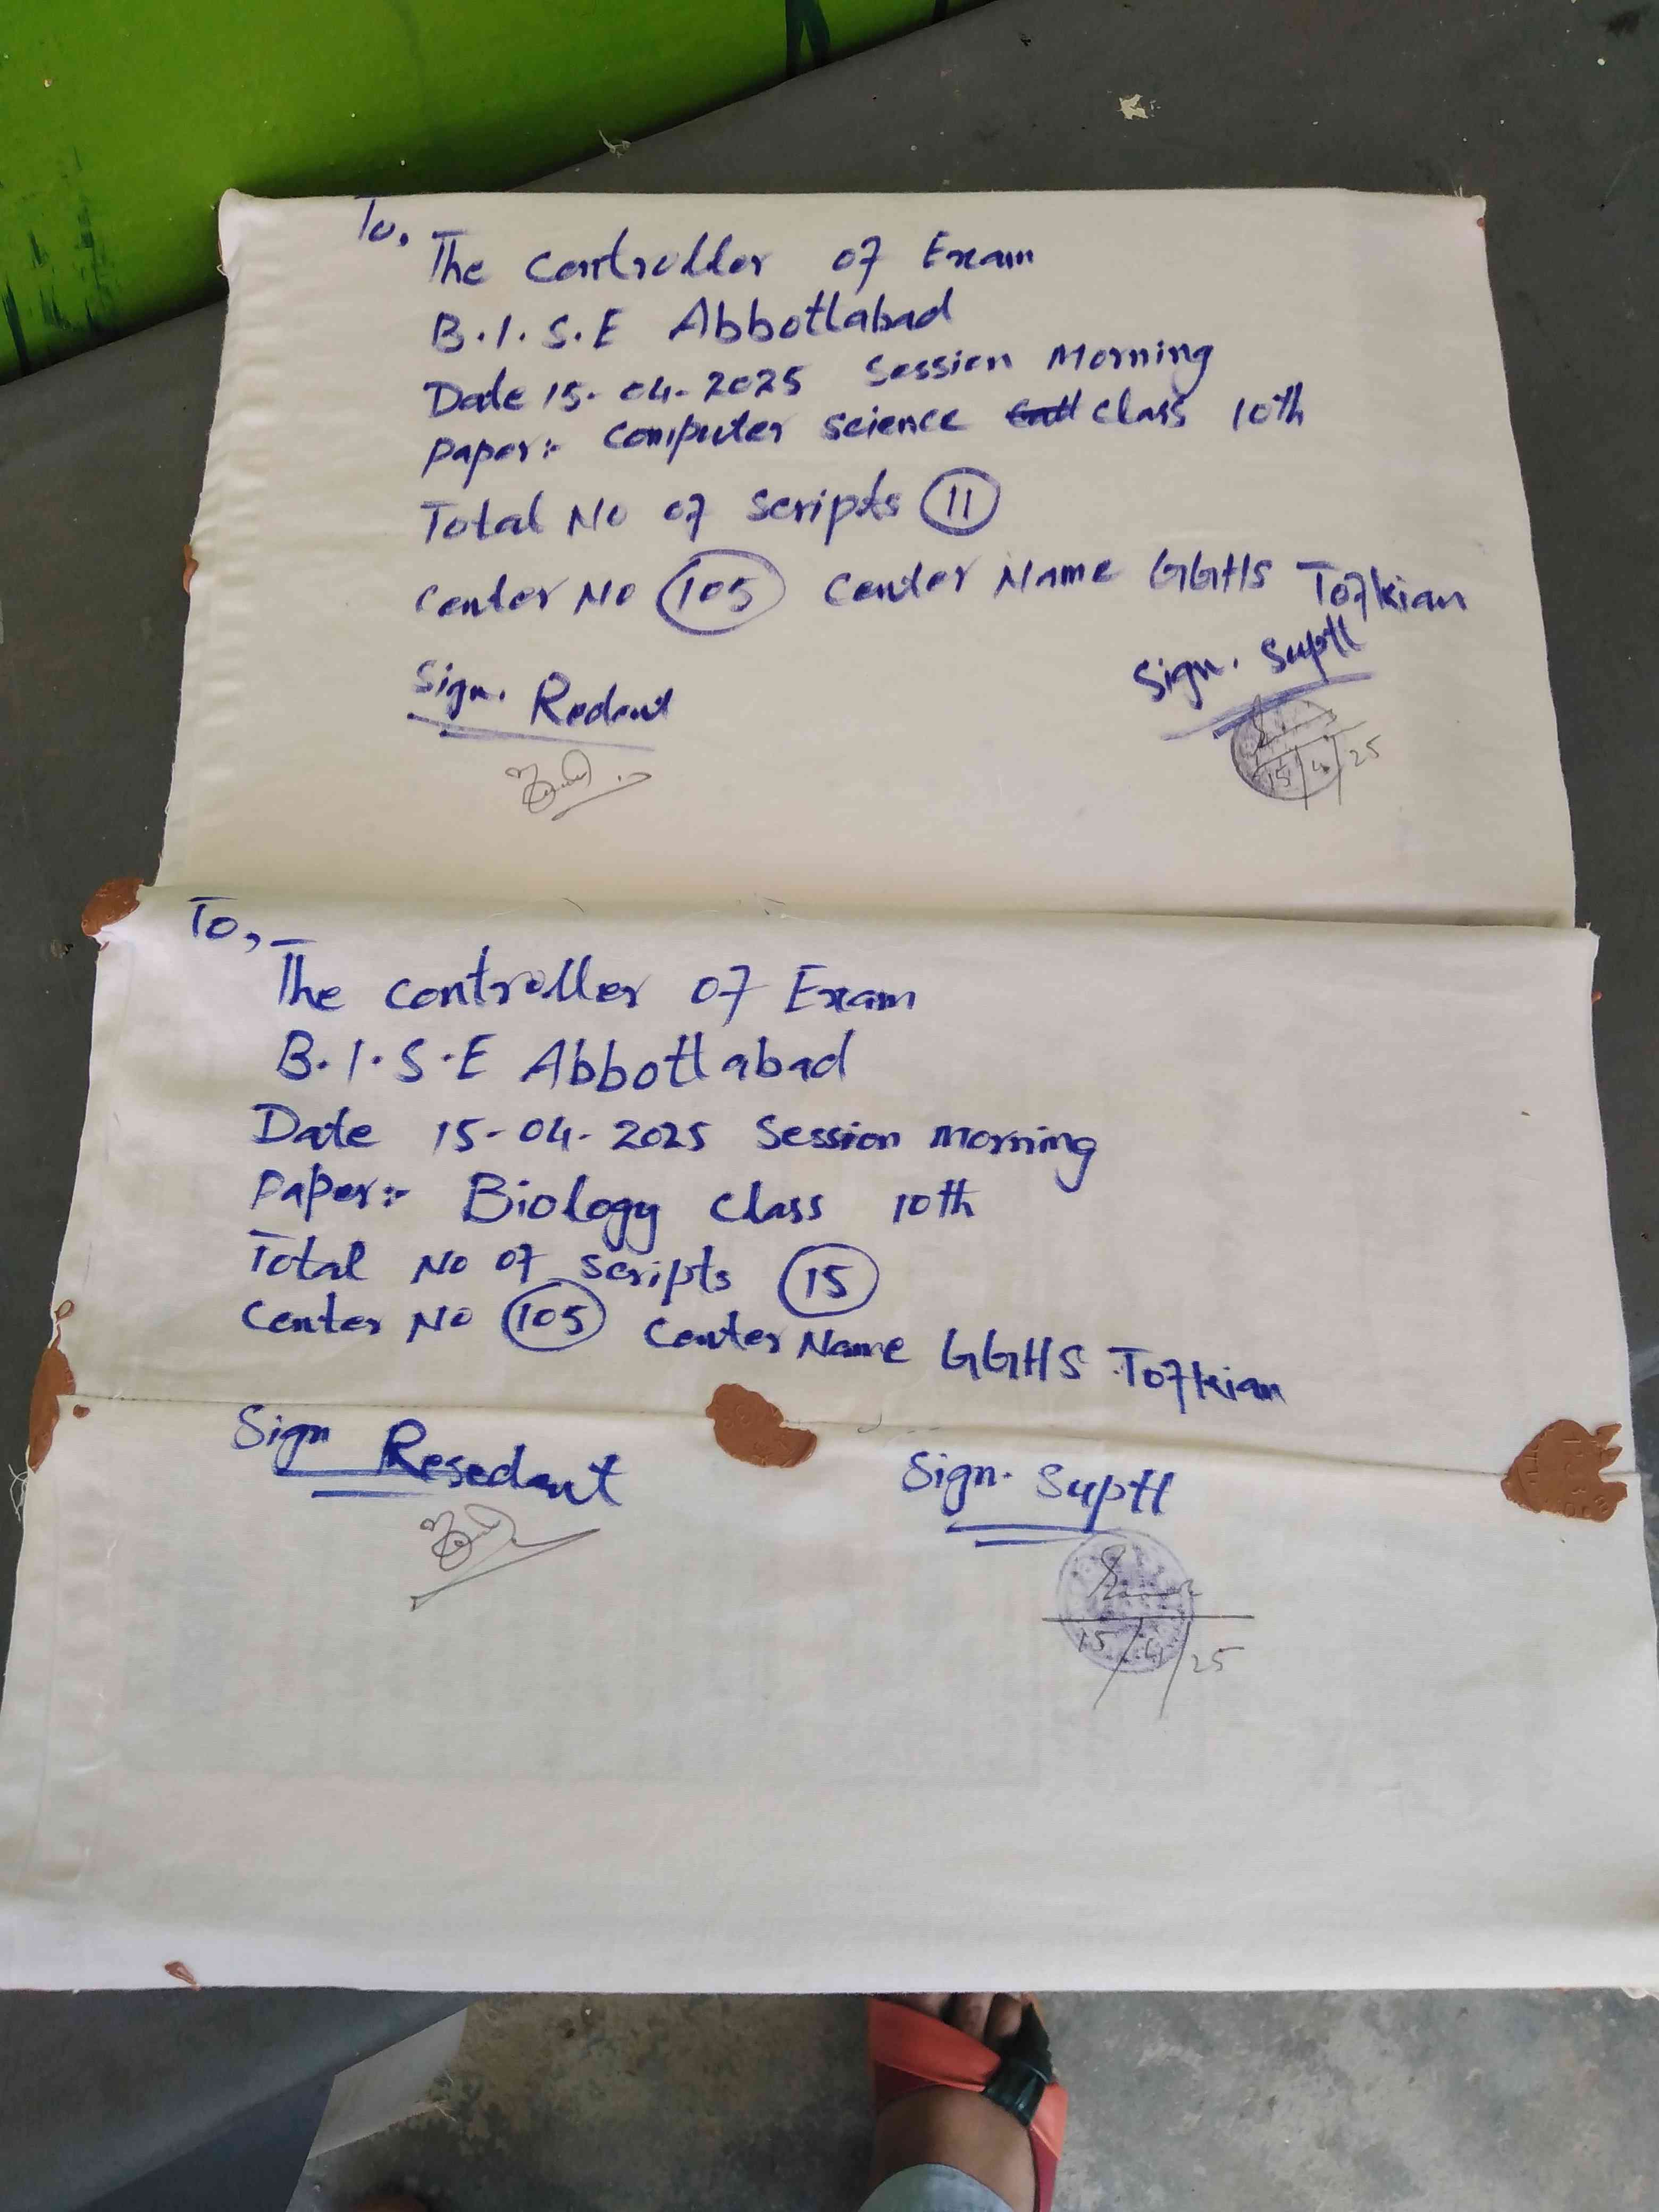 To,
The Controller of Exam
B.I.S.E Abbottabad
Date 15-04-2025 Session Morning
Paper:- Computer Science class 10th
Total No of scripts 11
Center No 105 Center Name GGHS Tofkian
Sign. Redant
Sign. Suptt
15/4/25
To,
The Controller of Exam
B.I.S.E Abbottabad
Date 15-04-2025 Session Morning
Paper:- Biology Class 10th
Total No of scripts 15
Center No 105 Center Name GGHS Tofkian
Sign Resedant
Sign. Suptt
15/4/25